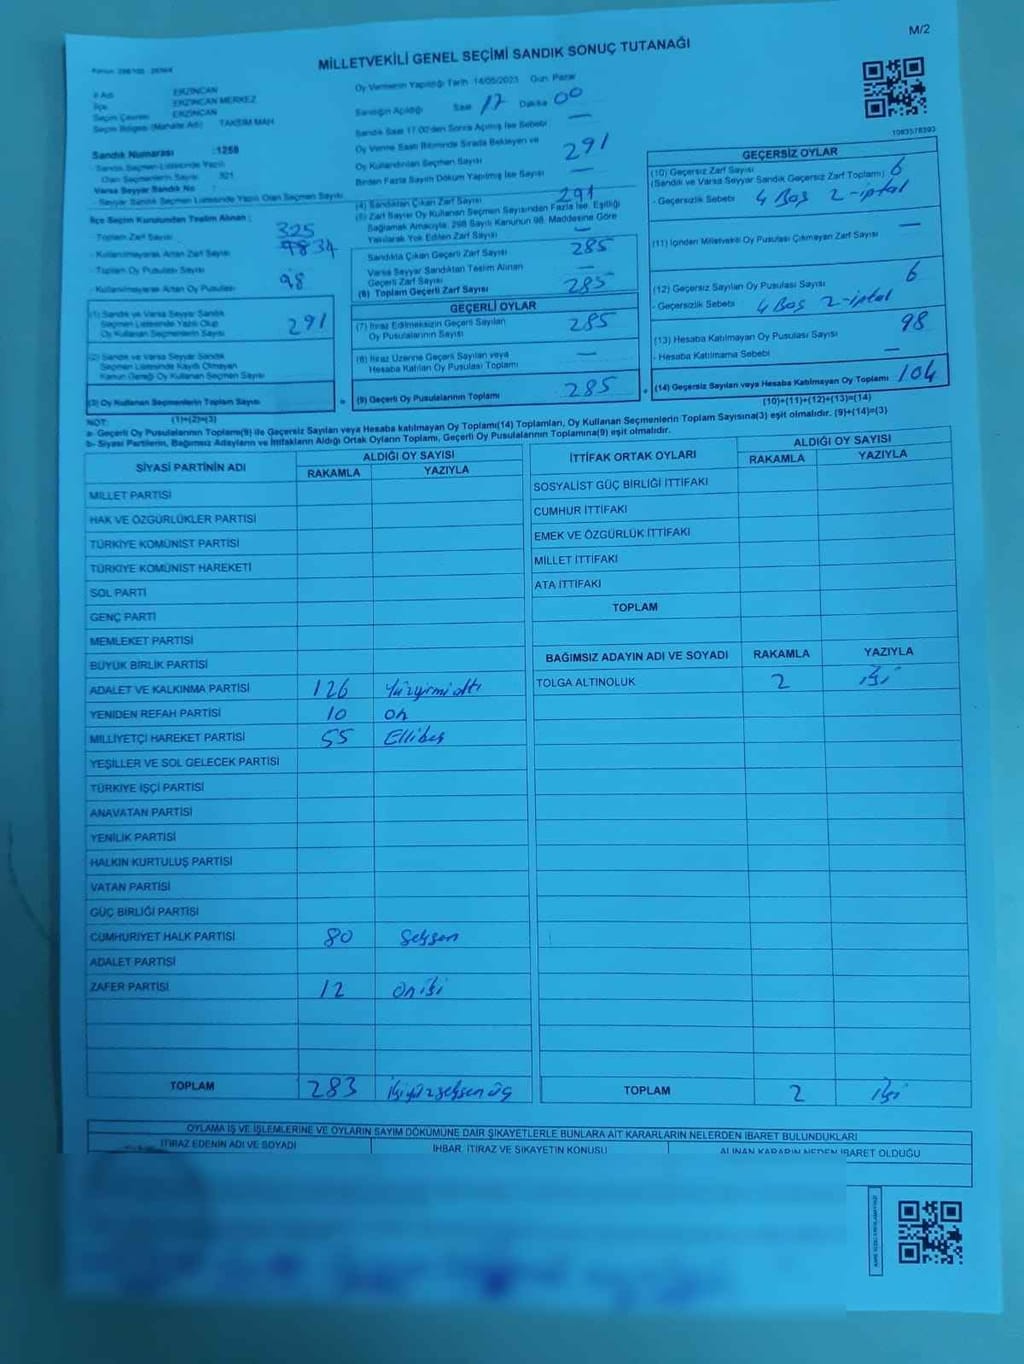 M/2
MİLLETVEKİLİ GENEL SEÇİMİ SANDIK SONUÇ TUTANAĞI
1083578393
İl Adı ERZİNCAN
İlçe ERZİNCAN MERKEZ
Seçim Çevresi ERZİNCAN
Seçim Bölgesi (Mahalle Adı) TAKSİM MAH
Sandık Numarası :1258
Sandık Seçmen Listesinde Yazılı
Olan Seçmenlerin Sayısı 321
Varsa Seyyar Sandık No :
Seyyar Sandık Seçmen Listesinde Yazılı Olan Seçmen Sayısı
İlçe Seçim Kurulundan Teslim Alınan :
- Toplam Zarf Sayısı 325
- Kullanılmayarak Artan Zarf Sayısı 34
- Toplam Oy Pusulası Sayısı
- Kullanılmayarak Artan Oy Pusulası 98
(1) Sandık ve Varsa Seyyar Sandık
Seçmen Listesinde Yazılı Olup
Oy Kullanan Seçmenlerin Sayısı 291
(2) Sandık ve Varsa Seyyar Sandık
Seçmen Listesinde Kayıtlı Olmayan
Kanun Gereği Oy Kullanan Seçmen Sayısı
(3) Oy Kullanan Seçmenlerin Toplam Sayısı
(1)+(2)=(3)
Oy Vermenin Yapıldığı Tarih 14/05/2023 Gün: Pazar
Sandığın Açıldığı Saat 17 Dakika 00
Sandık Saat 17:00'den Sonra Açılmış İse Sebebi —
Oy Verme Saati Bitiminde Sırada Bekleyen ve
Oy Kullandırılan Seçmen Sayısı 291
Birden Fazla Sayım Döküm Yapılmış İse Sayısı —
(4) Sandıktan Çıkan Zarf Sayısı 291
(5) Zarf Sayısı Oy Kullanan Seçmen Sayısından Fazla İse, Eşitliği
Sağlamak Amacıyla, 298 Sayılı Kanunun 98. Maddesine Göre
Yakılarak Yok Edilen Zarf Sayısı —
Sandıkta Çıkan Geçerli Zarf Sayısı 285
Varsa Seyyar Sandıktan Teslim Alınan
Geçerli Zarf Sayısı —
(6) Toplam Geçerli Zarf Sayısı 285
GEÇERLİ OYLAR
(7) İtiraz Edilmeksizin Geçerli Sayılan
Oy Pusulalarının Sayısı 285
(8) İtiraz Üzerine Geçerli Sayılan veya
Hesaba Katılan Oy Pusulası Toplamı —
(9) Geçerli Oy Pusulalarının Toplamı 285
GEÇERSİZ OYLAR
(10) Geçersiz Zarf Sayısı 6
(Sandık ve Varsa Seyyar Sandık Geçersiz Zarf Toplamı)
- Geçersizlik Sebebi 4 Boş 2-iptal
(11) İçinden Milletvekili Oy Pusulası Çıkmayan Zarf Sayısı —
(12) Geçersiz Sayılan Oy Pusulası Sayısı 6
- Geçersizlik Sebebi 4 Boş 2-iptal
(13) Hesaba Katılmayan Oy Pusulası Sayısı 98
- Hesaba Katılmama Sebebi —
(14) Geçersiz Sayılan veya Hesaba Katılmayan Oy Toplamı 104
(10)+(11)+(12)+(13)=(14)
NOT:
a- Geçerli Oy Pusulalarının Toplamı(9) ile Geçersiz Sayılan veya Hesaba katılmayan Oy Toplamı(14) Toplamları, Oy Kullanan Seçmenlerin Toplam Sayısına(3) eşit olmalıdır. (9)+(14)=(3)
b- Siyasi Partilerin, Bağımsız Adayların ve İttifakların Aldığı Ortak Oyların Toplamı, Geçerli Oy Pusulalarının Toplamına(9) eşit olmalıdır.
SİYASİ PARTİNİN ADI ALDIĞI OY SAYISI
RAKAMLA YAZIYLA
MİLLET PARTİSİ
HAK VE ÖZGÜRLÜKLER PARTİSİ
TÜRKİYE KOMÜNİST PARTİSİ
TÜRKİYE KOMÜNİST HAREKETİ
SOL PARTİ
GENÇ PARTİ
MEMLEKET PARTİSİ
BÜYÜK BİRLİK PARTİSİ
ADALET VE KALKINMA PARTİSİ 126 Yüzyirmi altı
YENİDEN REFAH PARTİSİ 10 on
MİLLİYETÇİ HAREKET PARTİSİ 55 Ellibeş
YEŞİLLER VE SOL GELECEK PARTİSİ
TÜRKİYE İŞÇİ PARTİSİ
ANAVATAN PARTİSİ
YENİLİK PARTİSİ
HALKIN KURTULUŞ PARTİSİ
VATAN PARTİSİ
GÜÇ BİRLİĞİ PARTİSİ
CUMHURİYET HALK PARTİSİ 80 Seksen
ADALET PARTİSİ
ZAFER PARTİSİ 12 Oniki
TOPLAM 283 İkiyüzseksen üç
İTTİFAK ORTAK OYLARI ALDIĞI OY SAYISI
RAKAMLA YAZIYLA
SOSYALİST GÜÇ BİRLİĞİ İTTİFAKI
CUMHUR İTTİFAKI
EMEK VE ÖZGÜRLÜK İTTİFAKI
MİLLET İTTİFAKI
ATA İTTİFAKI
TOPLAM
BAĞIMSIZ ADAYIN ADI VE SOYADI RAKAMLA YAZIYLA
TOLGA ALTINOLUK 2 iki
TOPLAM 2 iki
OYLAMA İŞ VE İŞLEMLERİNE VE OYLARIN SAYIM DÖKÜMÜNE DAİR ŞİKAYETLERLE BUNLARA AİT KARARLARIN NELERDEN İBARET BULUNDUKLARI
İTİRAZ EDENİN ADI VE SOYADI İHBAR, İTİRAZ VE ŞİKAYETİN KONUSU ALINAN KARARIN NEDEN İBARET OLDUĞU